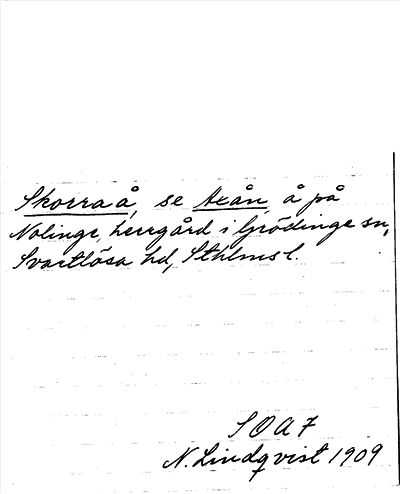 Skorraå, se Axån, å på
Nolinge, herrgård i Grödinge sn,
Svartlösa hd, Sthlmsl.
SOAF
N. Lindqvist 1909